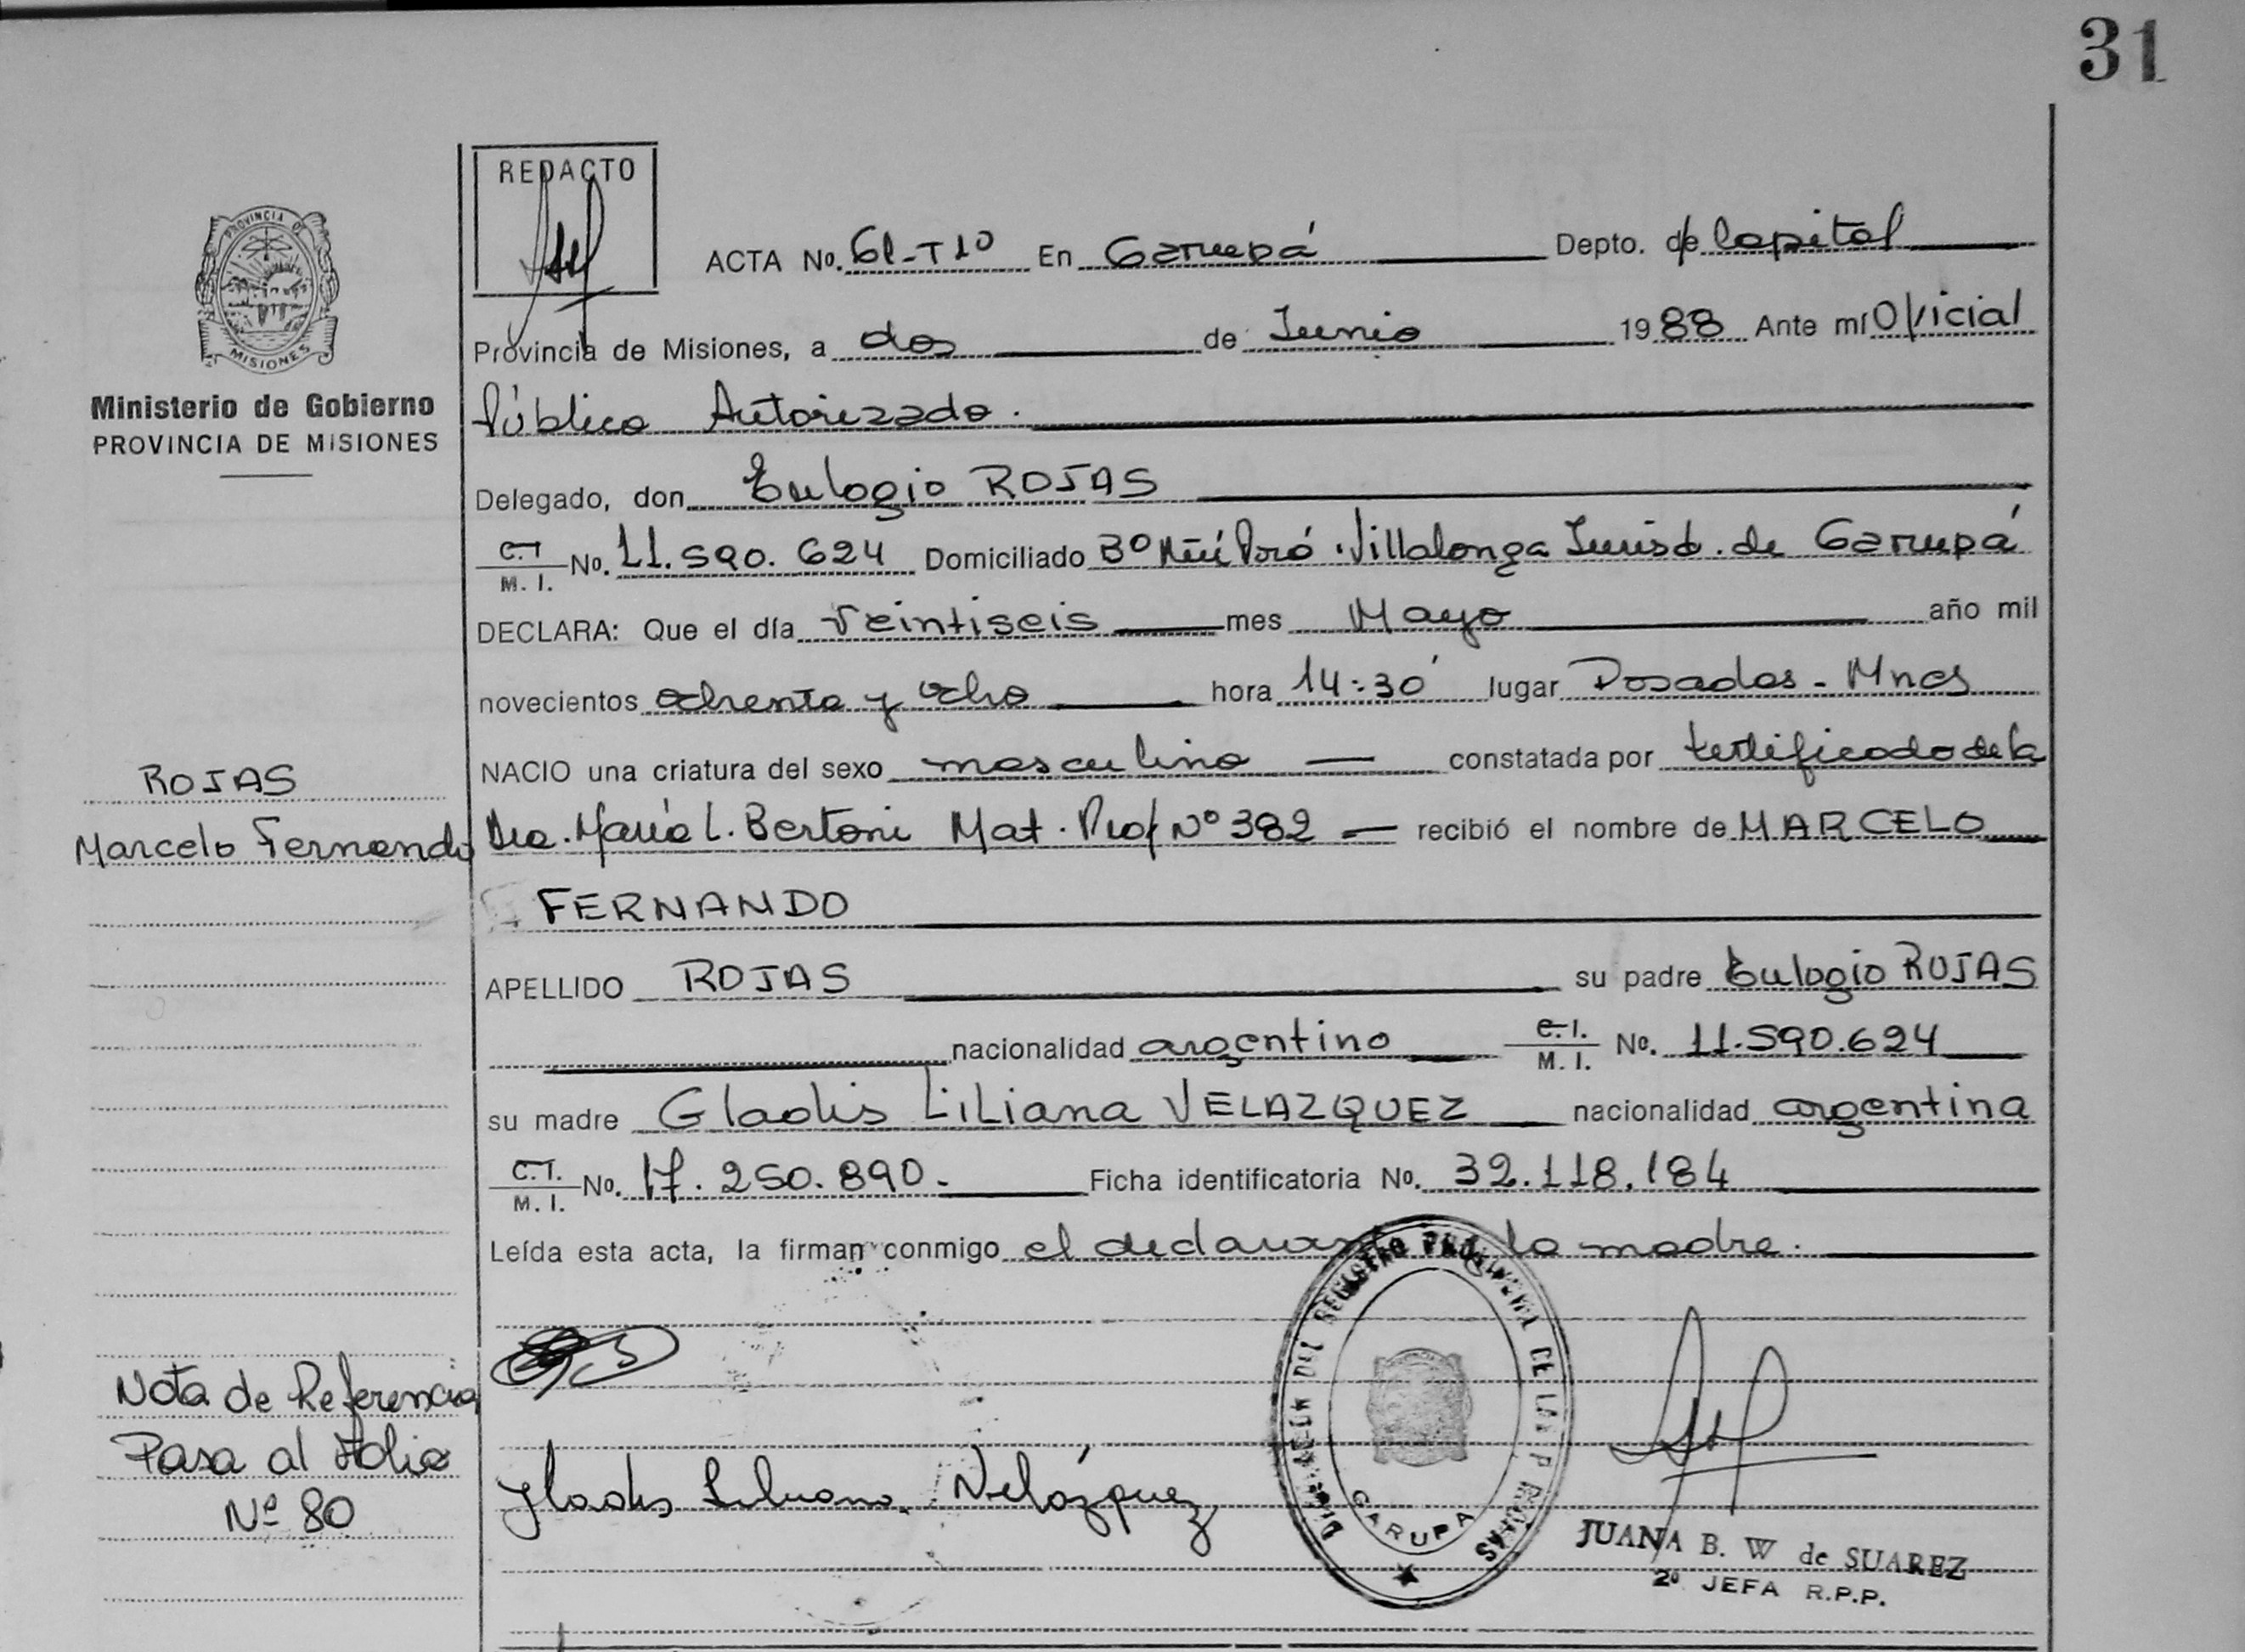 31
REDACTO
ACTA No. 61-T1º En Garupá Depto. de Capital
Provincia de Misiones, a dos de Junio 1988 Ante mí Oficial
Público Autorizado.
Delegado, don Eulogio ROJAS
C.I. M. I. No. 11.590.624 Domiciliado Bº Ñú Porá Villalonga Jurisd. de Garupá
DECLARA: Que el día veintiseis mes Mayo año mil
novecientos ochenta y ocho hora 14:30 lugar Posadas - Mnes
NACIO una criatura del sexo masculino constatada por certificado de la
Dra. María L. Bertoni Mat. Prof Nº 382 recibió el nombre de MARCELO
FERNANDO
APELLIDO ROJAS su padre Eulogio ROJAS
nacionalidad argentino C.I. M. I. No. 11.590.624
su madre Gladis Liliana VELAZQUEZ nacionalidad argentina
C.I. M. I. No. 17.250.890. Ficha identificatoria No. 32.118.184
Leída esta acta, la firman conmigo el declarante y la madre.
Gladis Liliana Velázquez
PROVINCIA DE MISIONES
Ministerio de Gobierno
PROVINCIA DE MISIONES
ROJAS
Marcelo Fernando
Nota de Referencia
Pasa al Folio
Nº 80
DEL REGISTRO PROVINCIAL DE LAS P
GARUPA
JUANA B. W de SUAREZ
2º JEFA R.P.P.